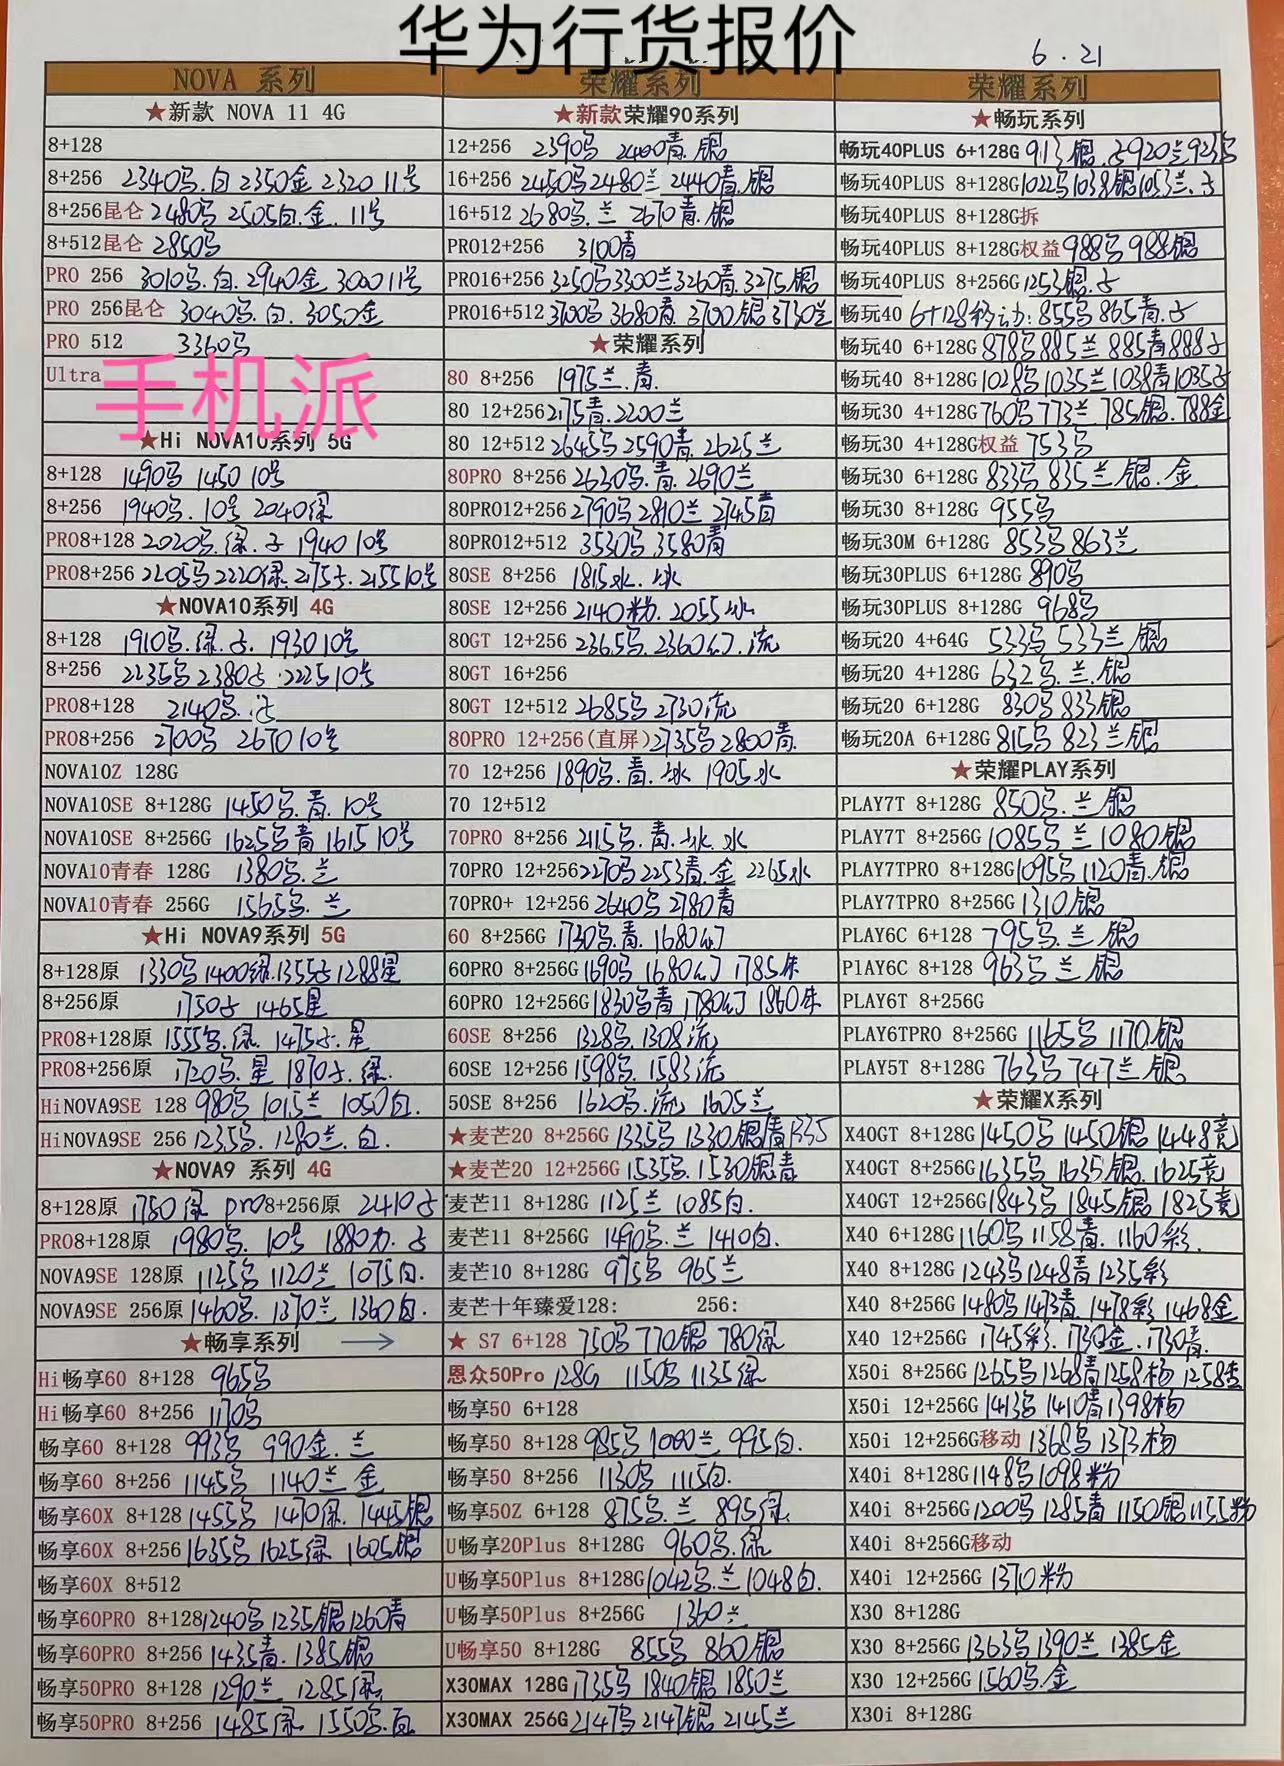 华为行货报价
6.21
NOVA 系列
★新款 NOVA 11 4G
8+128
8+256 2340乌.白 2350金 2320 11号
8+256昆仑 2480乌 2505白.金. 11号
8+512昆仑 2850乌
PRO 256 3010乌.白.2940金 3000 11号
PRO 256昆仑 3040乌.白. 3050金
PRO 512 3360乌
Ultra
手机派
★Hi NOVA10系列 5G
8+128 1490乌 1450 10号
8+256 1940乌. 10号 2040绿
PRO8+128 2020乌.绿.子 1940 10号
PRO8+256 2205乌 2220绿.2175子.2155 10号
★NOVA10系列 4G
8+128 1910乌.绿.子. 1930 10号
8+256 2235乌 2380子.2225 10号
PRO8+128 2140乌.
PRO8+256 2700乌 2670 10号
NOVA10Z 128G
NOVA10SE 8+128G 1450乌.青.10号
NOVA10SE 8+256G 1625乌青 1615 10号
NOVA10青春 128G 1380乌.兰
NOVA10青春 256G 1565乌.兰
★Hi NOVA9系列 5G
8+128原 1330乌 1400绿.1355子 1288星
8+256原 1750子 1465星
PRO8+128原 1555乌.绿. 1475子.星
PRO8+256原 1720乌.星 1870子.绿.
HiNOVA9SE 128 980乌 1015兰 1050白.
HiNOVA9SE 256 1235乌. 1280兰.白.
★NOVA9 系列 4G
8+128原 1750绿 pro8+256原 2410子
PRO8+128原 1980乌. 10号 1880力.子
NOVA9SE 128原 1125乌 1120兰 1075白.
NOVA9SE 256原 1460乌. 1370兰 1360白.
★畅享系列 →
Hi畅享60 8+128 965乌
Hi畅享60 8+256 1170乌
畅享60 8+128 993乌 990金.兰
畅享60 8+256 1145乌 1140兰金
畅享60X 8+128 1455乌 1470绿. 1445银
畅享60X 8+256 1635乌 1625绿 1605银
畅享60X 8+512
畅享60PRO 8+128 1240乌 1235银 1260青
畅享60PRO 8+256 1435青.1385银
畅享50PRO 8+128 1290兰 1285绿
畅享50PRO 8+256 1485绿 1550乌.白
荣耀系列
★新款荣耀90系列
12+256 2390乌 2400青.银
16+256 2450乌 2480兰 2440青.银
16+512 2680乌.兰 2670青.银
PRO12+256 3100青
PRO16+256 3250乌 3300兰 3260青.3275银
PRO16+512 3700乌 3680青. 3700银 3730兰
★荣耀系列
80 8+256 1975兰.青.
80 12+256 2175青.2200兰
80 12+512 2645乌 2590青.2625兰
80PRO 8+256 2630乌.青.2690兰
80PRO12+256 2790乌 2810兰 2745青
80PRO12+512 3530乌 3580青
80SE 8+256 1815水.冰
80SE 12+256 2140粉.2055冰
80GT 12+256 2365乌.2360幻.流
80GT 16+256
80GT 12+512 2685乌 2730流
80PRO 12+256(直屏) 2735乌 2800青.
70 12+256 1890乌.青.冰 1905水
70 12+512
70PRO 8+256 2115乌.青.冰.水
70PRO 12+256 2270乌 2253青.金 2265水
70PRO+ 12+256 2640乌 2780青
60 8+256G 1730乌.青.1680幻
60PRO 8+256G 1690乌 1680幻 1785朱
60PRO 12+256G 1830乌青 1780幻 1860朱
60SE 8+256 1328乌.1308流
60SE 12+256 1598乌.1583流
50SE 8+256 1620乌.流 1605兰
★麦芒20 8+256G 1335乌 1330银青 1335
★麦芒20 12+256G 1535乌.1530银青
麦芒11 8+128G 1125兰 1085白.
麦芒11 8+256G 1490乌.兰 1410白.
麦芒10 8+128G 975乌 965兰
麦芒十年臻爱128: 256:
★ S7 6+128 750乌 770银 780绿
恩众50Pro 128G 1150乌 1135绿
畅享50 6+128
畅享50 8+128 985乌 1000兰 995白.
畅享50 8+256 1130乌 1115白.
畅享50Z 6+128 875乌.兰 895绿
U畅享20Plus 8+128G 960乌.绿
U畅享50Plus 8+128G 1042乌.兰 1048白.
U畅享50Plus 8+256G 1360兰
U畅享50 8+128G 855乌 860银
X30MAX 128G 1735乌 1840银 1850兰
X30MAX 256G 2147乌 2147银 2145兰
荣耀系列
★畅玩系列
畅玩40PLUS 6+128G 913银.子920兰923乌
畅玩40PLUS 8+128G 1022乌 1038银 1053兰.子
畅玩40PLUS 8+128G拆
畅玩40PLUS 8+128G权益 988乌 988银
畅玩40PLUS 8+256G 1253银.子
畅玩40 6+128移动:855乌 865青.子
畅玩40 6+128G 878乌 885兰 885青 888子
畅玩40 8+128G 1028乌 1035兰 1038青 1035子
畅玩30 4+128G 760乌 773兰 785银.788金
畅玩30 4+128G权益 753乌
畅玩30 6+128G 833乌 835兰 银.金
畅玩30 8+128G 955乌
畅玩30M 6+128G 853乌 863兰
畅玩30PLUS 6+128G 890乌
畅玩30PLUS 8+128G 968乌
畅玩20 4+64G 533乌 533兰 银
畅玩20 4+128G 632乌.兰.银
畅玩20 6+128G 830乌 833银
畅玩20A 6+128G 815乌 823兰银
★荣耀PLAY系列
PLAY7T 8+128G 850乌.兰 银
PLAY7T 8+256G 1085乌 兰 1080银
PLAY7TPRO 8+128G 1095乌 1120青.银
PLAY7TPRO 8+256G 1310银
PLAY6C 6+128 795乌.兰 银
PlAY6C 8+128 963乌 兰 银
PLAY6T 8+256G
PLAY6TPRO 8+256G 1165乌 1170.银
PLAY5T 8+128G 763乌 747兰 银
★荣耀X系列
X40GT 8+128G 1450乌 1450银 1448竞
X40GT 8+256G 1635乌 1635银.1625竞
X40GT 12+256G 1843乌 1845银 1825竞
X40 6+128G 1160乌 1158青. 1160彩.
X40 8+128G 1243乌 1248青 1235彩
X40 8+256G 1480乌 1473青. 1478彩 1468金
X40 12+256G 1745彩.1730金.1730青.
X50i 8+256G 1265乌 1268青 1258杨 1258杏
X50i 12+256G 1413乌 1410青 1398杨
X50i 12+256G移动 1368乌 1373杨
X40i 8+128G 1148乌 1098粉
X40i 8+256G 1200乌 1285青 1150银 1155粉
X40i 8+256G移动
X40i 12+256G 1370粉
X30 8+128G
X30 8+256G 1363乌 1390兰 1385金
X30 12+256G 1560乌.金
X30i 8+128G